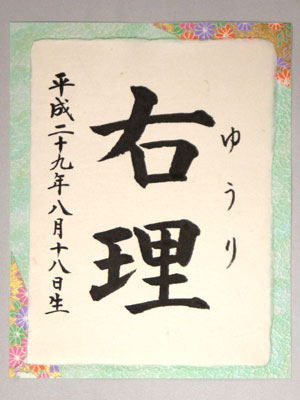 ゆうり
右理
平成二十九年八月十八日生